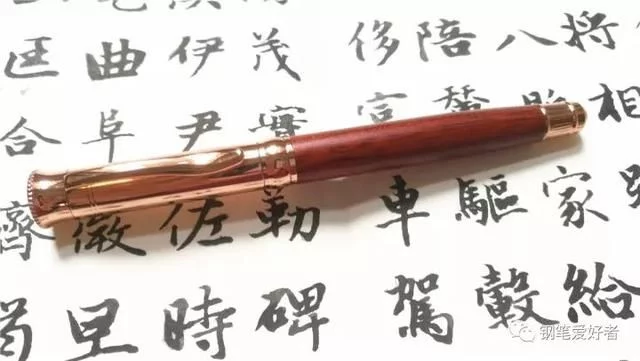 将相
八家給
陪輦驅轂
侈富車駕
茂實勒碑
伊尹佐時
曲阜微旦
匡合濟
钢笔爱好者